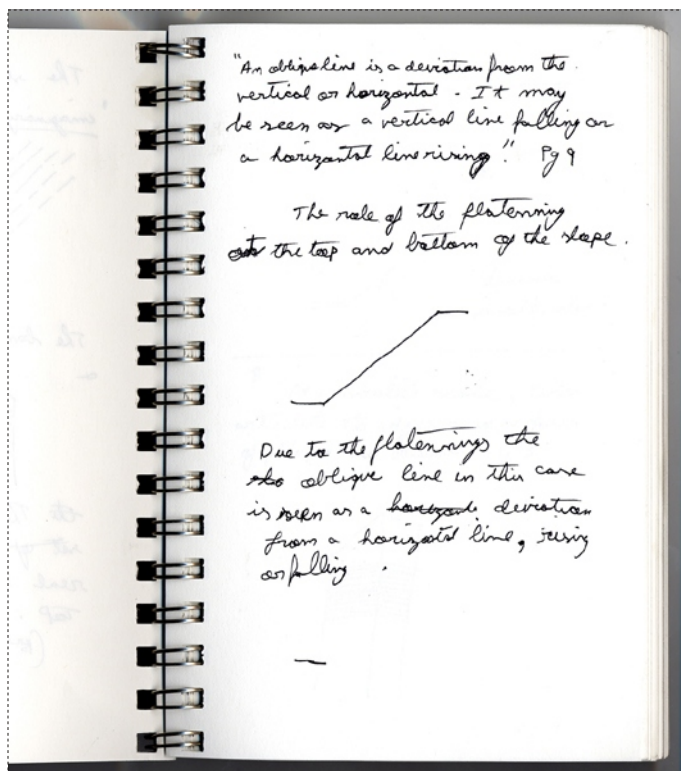 "An oblique line is a deviation from the
vertical or horizontal. It may
be seen as a vertical line falling or
a horizontal line rising". Pg 9
The role of the flatenning
at the top and bottom of the slope.
Due to the flatennings the
oblique line in this case
is seen as a deviation
from a horizontal line, rising
or falling.